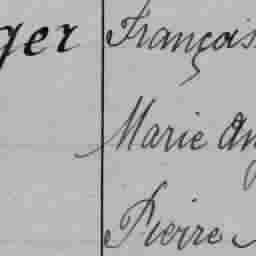 ger François
Marie An
Pierre